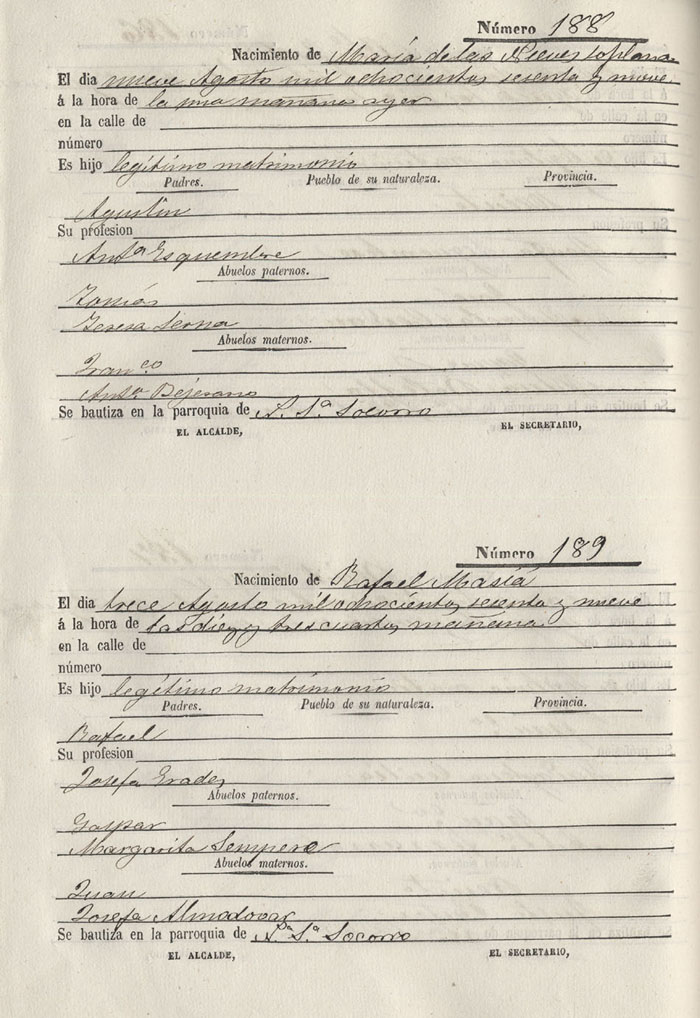 Número 188
Nacimiento de María de las Nieves Soplana
El dia nueve Agosto mil ochocientos sesenta y nueve
á la hora de la una mañana ayer
en la calle de
número
Es hijo legítimo matrimonio
Padres. Pueblo de su naturaleza. Provincia.
Agustin
Su profesion
Antª Esquembre
Abuelos paternos.
Tomás
Teresa Serna
Abuelos maternos.
Franco
Antª Bejerano
Se bautiza en la parroquia de N. Sª Socorro
EL ALCALDE, EL SECRETARIO,
Número 189
Nacimiento de Rafael Masiá
El dia trece Agosto mil ochocientos sesenta y nueve
á la hora de las diez y tres cuartos mañana
en la calle de
número
Es hijo legítimo matrimonio
Padres. Pueblo de su naturaleza. Provincia.
Rafael
Su profesion
Josefa Grades
Abuelos paternos.
Gaspar
Margarita Sempere
Abuelos maternos.
Juan
Josefa Almodovar
Se bautiza en la parroquia de Nª Sª Socorro
EL ALCALDE, EL SECRETARIO,